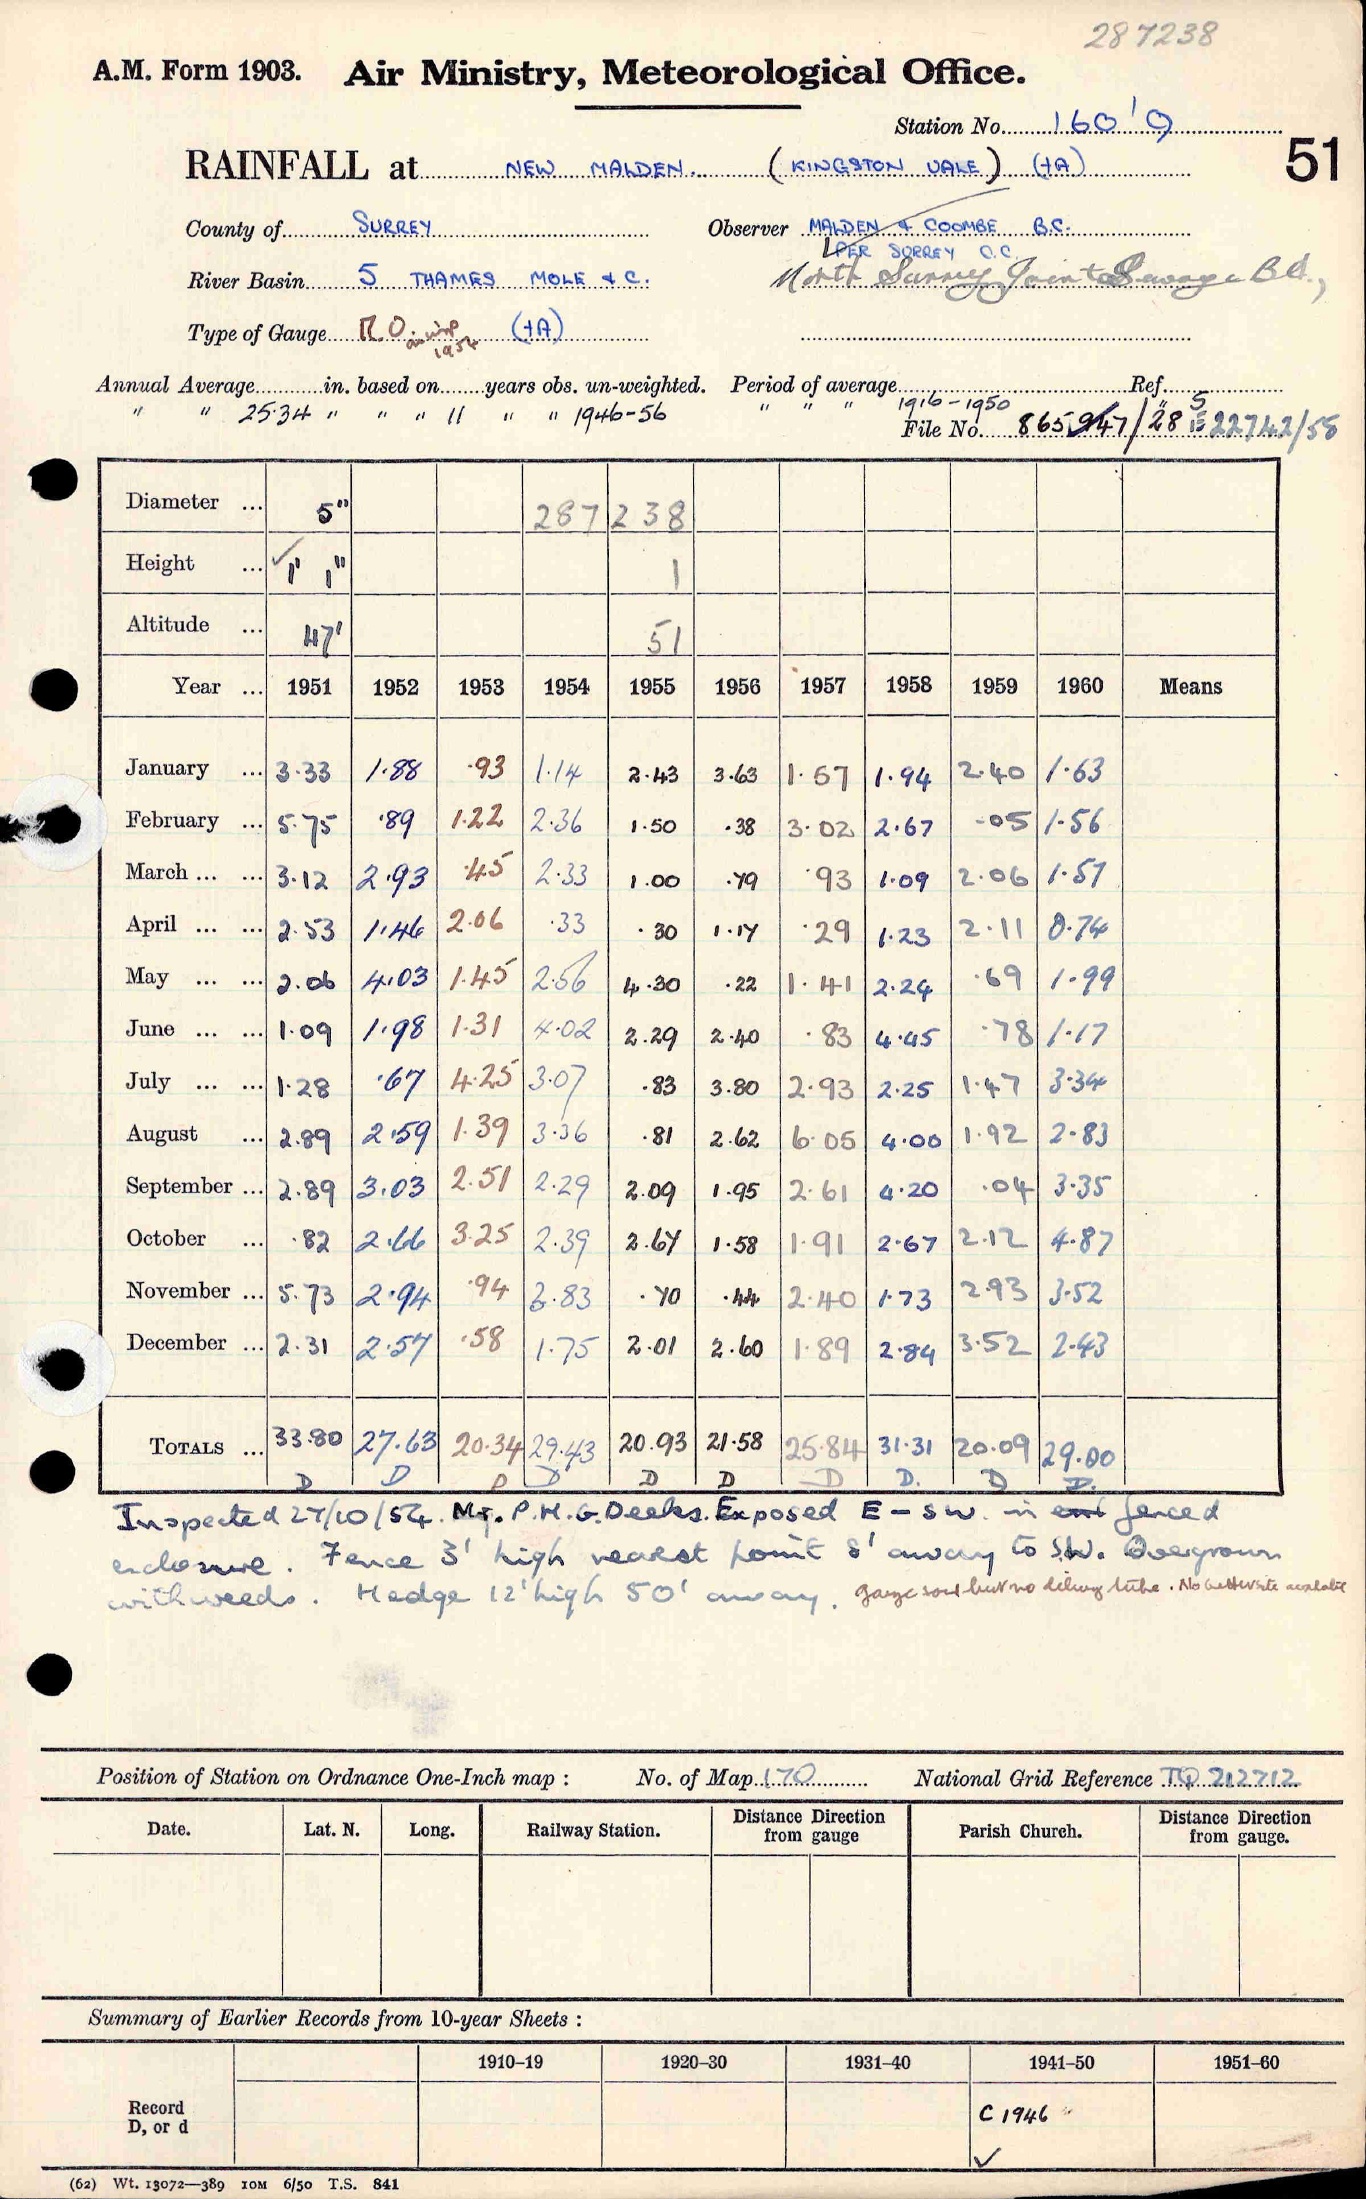 287238
A.M. Form 1903. Air Ministry, Meteorological Office.
Station No. 160'9
51
RAINFALL at NEW MALDEN. (KINGSTON VALE) (tA)
County of SURREY Observer MALDEN & COOMBE B.C.
PER SURREY C.C.
River Basin 5 THAMES MOLE & C. North Surrey Joint Sewage Bd.,
Type of Gauge M.O. 1954 (tA)
Annual Average in. based on years obs. un-weighted. Period of average Ref.
" " 25.34 " " " 11 " " 1946-56 " " " 1916-1950 "
File No. 865947/28 22742/58
Diameter ... 5" 287238
Height ... 1' 1" 1
Altitude ... 47' 51
Year ... 1951 1952 1953 1954 1955 1956 1957 1958 1959 1960 Means
January ... 3.33 1.88 .93 1.14 2.43 3.63 1.57 1.94 2.40 1.63
February ... 5.75 .89 1.22 2.36 1.50 .38 3.02 2.67 .05 1.56
March ... ... 3.12 2.93 .45 2.33 1.00 .79 .93 1.09 2.06 1.57
April ... ... 2.53 1.46 2.06 .33 .30 1.17 .29 1.23 2.11 0.74
May ... ... 2.06 4.03 1.45 2.56 4.30 .22 1.41 2.24 .69 1.99
June ... ... 1.09 1.98 1.31 4.02 2.29 2.40 .83 4.45 .78 1.17
July ... ... 1.28 .67 4.25 3.07 .83 3.80 2.93 2.25 1.47 3.34
August ... 2.89 2.59 1.39 3.36 .81 2.62 6.05 4.00 1.92 2.83
September ... 2.89 3.03 2.51 2.29 2.09 1.95 2.61 4.20 .04 3.35
October ... .82 2.66 3.25 2.39 2.67 1.58 1.91 2.67 2.12 4.87
November ... 5.73 2.94 .94 3.83 .70 .44 2.40 1.73 2.93 3.52
December ... 2.31 2.57 .58 1.75 2.01 2.60 1.89 2.84 3.52 2.43
TOTALS ... 33.80 27.63 20.34 29.43 20.93 21.58 25.84 31.31 20.09 29.00
D D D D D D D D. D D.
Inspected 27/10/54. Mr. P.H.G. Deeks. Exposed E - SW. in fenced
enclosure. Fence 3' high nearest point 8' away to SW. Overgrown
with weeds. Hedge 12' high 50' away. gauge but no tube. No better site available
Position of Station on Ordnance One-Inch map : No. of Map 170 National Grid Reference TQ 212712
Date. Lat. N. Long. Railway Station. Distance Direction from gauge Parish Church. Distance Direction from gauge.
Summary of Earlier Records from 10-year Sheets :
1910–19 1920–30 1931–40 1941–50 1951–60
Record
D, or d
C 1946
(62) Wt. 13072—389 10M 6/50 T.S. 841